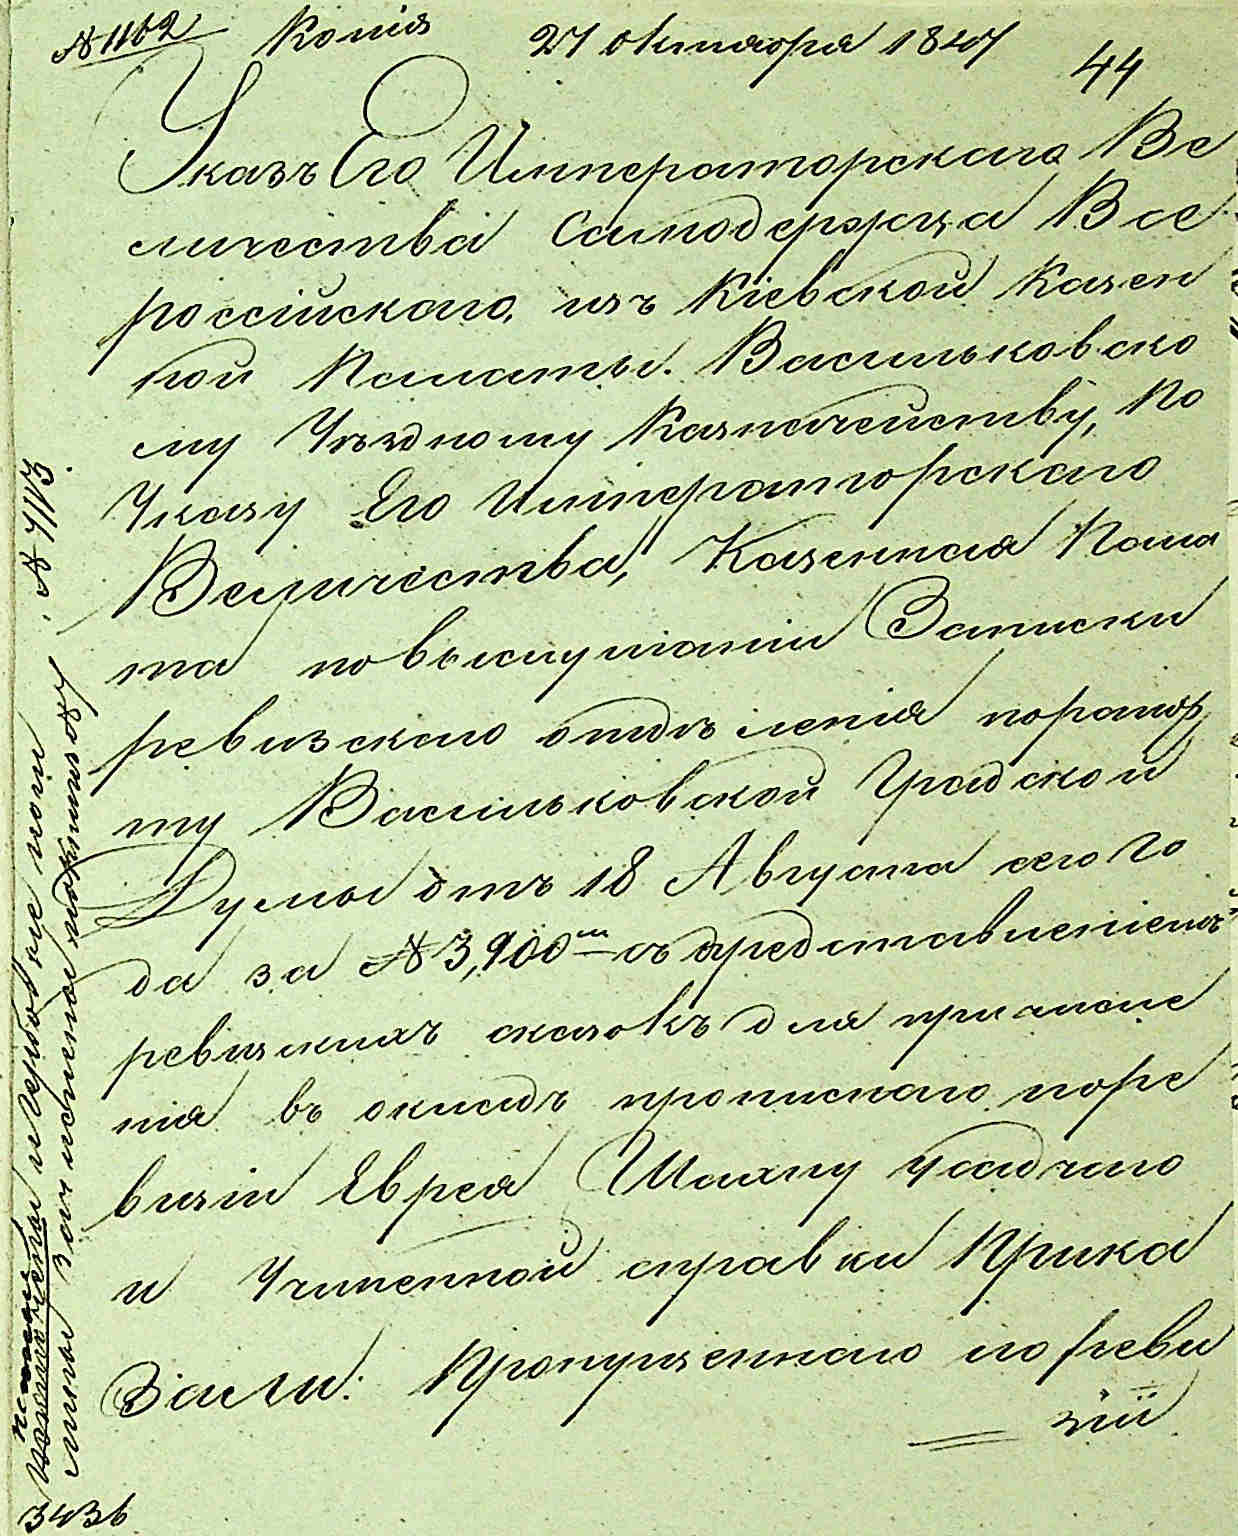 № 1162 Копія 27 Октября 1847
44
Указъ Его Императорскаго Ве
личества Самодержца Все
россійскаго, изъ Кіевской Казен
ной Палаты. Васильковско
му Уѣздному Казначейству, По
Указу Его Императорскаго
Величества, Казенная Пала
та по выслушаніи Записки
ревизскаго отдѣленія порапор
ту Васильковской Градской
Думы отъ 18 Августа сего Го
да за № 3,900ш съ представленіемъ
ревизкихъ сказокъ для причисле
нія въ окладъ прописнаго поре
визіи Еврея Шлиому
и Учиненной справки Прика
зали: Пропущеннаго по реви
зіи
№ 7113.
3436